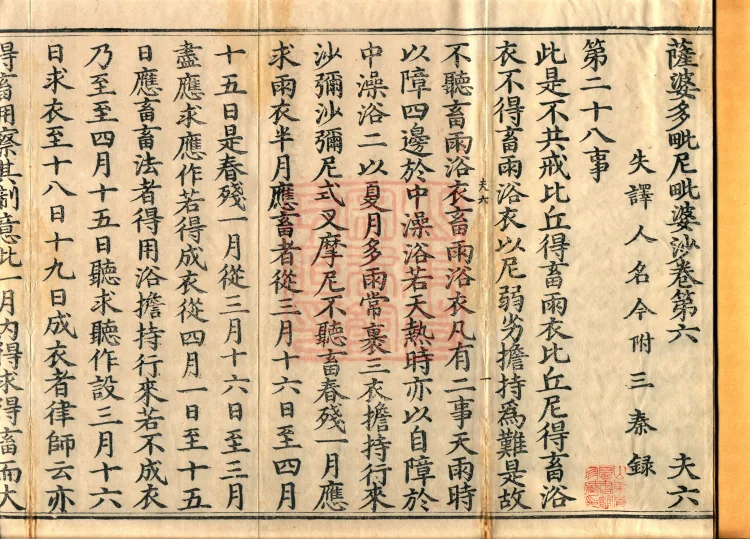 薩婆多毗尼毗婆沙卷第六 夫六
失譯人名今附三秦錄
第二十八事
此是不共戒比丘得畜雨衣比丘尼得畜浴
衣不得畜雨浴衣以尼弱劣擔持為難是故
夫六 一
不聽畜雨浴衣畜雨浴衣凡有二事天雨時
以障四邊於中澡浴若天熱時亦以自障於
中澡浴二以夏月多雨常裹三衣擔持行來
沙彌沙彌尼式叉摩尼不聽畜春殘一月應
求雨衣半月應畜者從三月十六日至四月
十五日是春殘一月從三月十六日至三月
盡應求應作若得成衣從四月一日至十五
日應畜畜法者得用浴擔持行來若不成衣
乃至至四月十五日聽求聽作設三月十六
日求衣至十八日十九日成衣者律師云亦
得畜用察其制意此一月內得求得畜而大